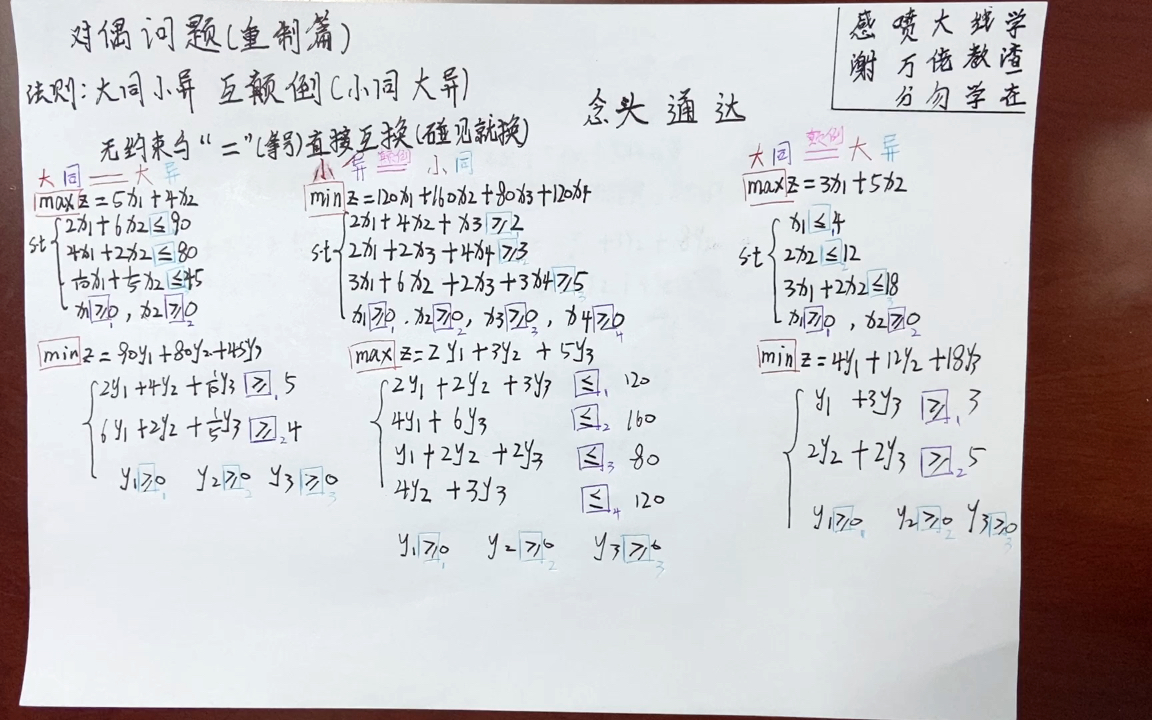 对偶问题(重制篇)
法则:大同小异 互颠倒(小同大异)
无约束与“=”(等号)直接互换(碰见就换)
念头通达
学渣在
线教学
大佬勿
喷万分
感谢
大同 大异
max z = 5x1 + 4x2
s.t
2x1 + 6x2 ≤ 90
4x1 + 2x2 ≤ 80
1/10x1 + 1/5x2 ≤ 45
x1 ≥ 0 , x2 ≥ 0
1 2
min z = 90y1 + 80y2 + 45y3
2y1 + 4y2 + 1/10y3 ≥ 1 5
6y1 + 2y2 + 1/5y3 ≥ 2 4
y1 ≥ 0 y2 ≥ 0 y3 ≥ 0
1 2 3
小异 颠倒 小同
min z = 120x1 + 160x2 + 80x3 + 120x4
s.t
2x1 + 4x2 + x3 ≥ 2
2x1 + 2x3 + 4x4 ≥ 3
3x1 + 6x2 + 2x3 + 3x4 ≥ 5
x1 ≥ 0 , x2 ≥ 0 , x3 ≥ 0 , x4 ≥ 0
1 2 3 4
max z = 2y1 + 3y2 + 5y3
2y1 + 2y2 + 3y3 ≤ 1 120
4y1 + 6y3 ≤ 2 160
y1 + 2y2 + 2y3 ≤ 3 80
4y2 + 3y3 ≤ 4 120
y1 ≥ 0 y2 ≥ 0 y3 ≥ 0
1 2 3
大同 颠倒 大异
max z = 3x1 + 5x2
s.t
x1 ≤ 4
2x2 ≤ 12
3x1 + 2x2 ≤ 18
x1 ≥ 0 , x2 ≥ 0
1 2
min z = 4y1 + 12y2 + 18y3
y1 + 3y3 ≥ 1 3
2y2 + 2y3 ≥ 2 5
y1 ≥ 0 y2 ≥ 0 y3 ≥ 0
1 2 3